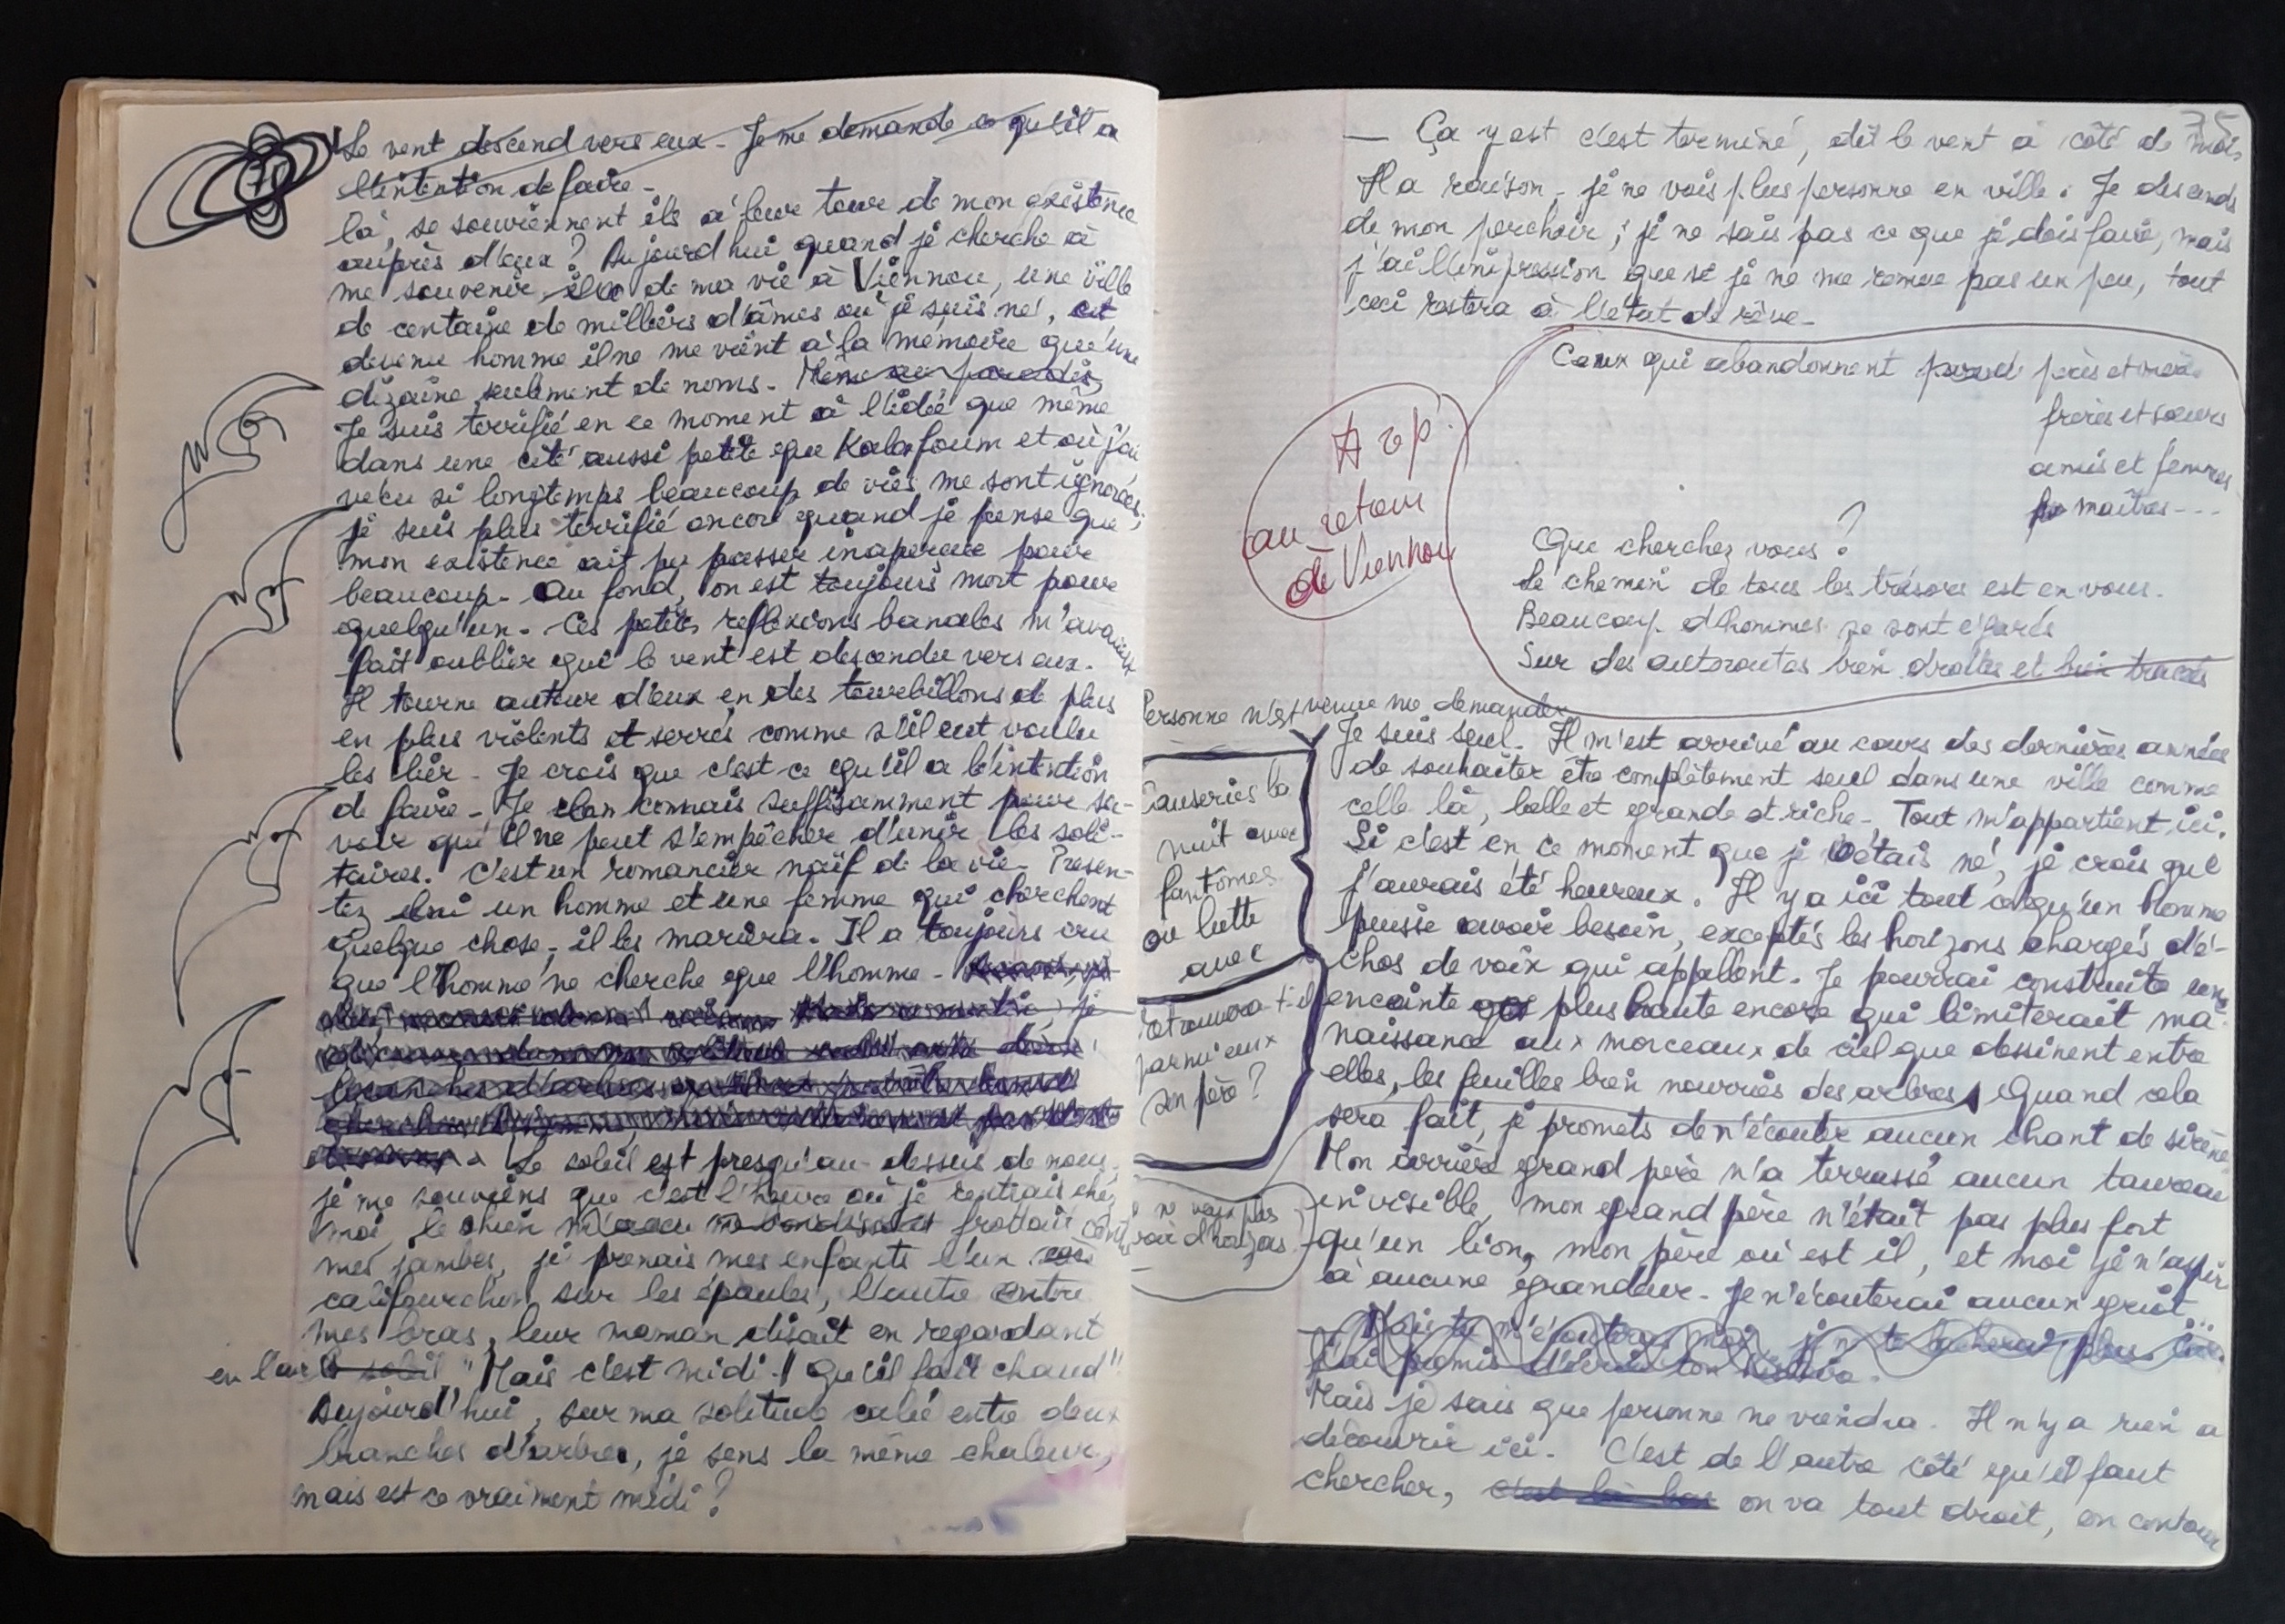 Le vent descend vers eux - Je me demande ce qu'il a
l'intention de faire -
là, se souviennent ils à leur tour de mon existence
auprès d'eux ? Aujourd'hui quand je cherche à
me souvenir de ma vie à Viennou, une ville
de centaine de milliers d'âmes où je suis né, et
devenu homme il ne me vient à la mémoire qu'une
dizaine seulement de noms. Même
Je suis terrifié en ce moment à l'idée que même
dans une cité aussi petite que Kalafoum et où j'ai
vécu si longtemps beaucoup de vies me sont ignorées ;
je suis plus terrifié encore quand je pense que
mon existence ait pu passer inaperçue pour
beaucoup. Au fond, on est toujours mort pour
quelqu'un. Ces petites reflexions banales m'avaient
fait oublier que le vent est descendu vers eux.
Il tourne autour d'eux en des tourbillons de plus
en plus violents et serrés comme s'il eut voulu
les lier - Je crois que c'est ce qu'il a l'intention
de faire - Je connais suffisamment pour sa-
voir qu'il ne peut s'empêcher d'unir les soli-
taires. C'est un romancier naïf de la vie - Présen-
tez lui un homme et une femme qui cherchent
quelque chose, il les mariera. Il a toujours cru
que l'homme ne cherche que l'homme -
Le soleil est presqu'au-dessus de nous,
je me souviens que c'est l'heure où je rentrais chez
moi, le chien frottait contre
mes jambes, je prenais mes enfants l'un
califourchon sur les épaules, l'autre entre
mes bras, leur maman disait en regardant
en l'air le soleil "Mais c'est midi ! Qu'il fait chaud"
Aujourd'hui, sur ma solitude calé entre deux
branches d'arbres, je sens la même chaleur,
mais est ce vraiment midi ?
35
— Ça y est c'est terminé, dit le vent à côté de moi
Il a raison - je ne vois plus personne en ville. Je descends
de mon perchoir ; je ne sais pas ce que je dois faire, mais
j'ai l'impression que si je ne me remue pas un peu, tout
ceci restera à l'état de rêve -
Ceux qui abandonnent pères et mères
frères et sœurs
amis et femmes
maîtres - - -
Que cherchez vous ?
Le chemin de tous les trésors est en vous.
Beaucoup d'hommes se sont égarés
Sur des autoroutes bien droites et bien tracées
A rep.
au retour
de Viennou
Personne n'est venue me demander
Causeries la
nuit avec
fantômes
ou lutte
avec
retrouvera t-il
parmi eux
son père ?
ne veux pas
voir d'horizons
Je suis seul. Il m'est arrivé au cours des dernières années
de souhaiter être complètement seul dans une ville comme
celle là, belle et grande et riche - Tout m'appartient ici.
Si c'est en ce moment que j'étais né, je crois que
j'aurais été heureux. Il y a ici tout ce qu'un homme
puisse avoir besoin, exceptés les horizons chargés d'é-
chos de voix qui appellent. Je pourrai construire une
enceinte plus haute encore qui limiterait ma
naissance aux morceaux de ciel que dessinent entre
elles, les feuilles bien nourries des arbres. Quand cela
sera fait, je promets de n'écouter aucun chant de sirène
Mon arrière grand père n'a terrassé aucun taureau
invisible, mon grand père n'était pas plus fort
qu'un lion, mon père où est il, et moi je n'aspire
à aucune grandeur - Je n'écouterai aucun griot...
— Mais tu m'écoutera, moi, je ne te lâcherai plus
j'ai promis d'écrire ton histoire.
Mais je sais que personne ne viendra. Il n'y a rien a
découvrir ici. C'est de l'autre côté qu'il faut
chercher, c'est là bas on va tout droit, on contourne